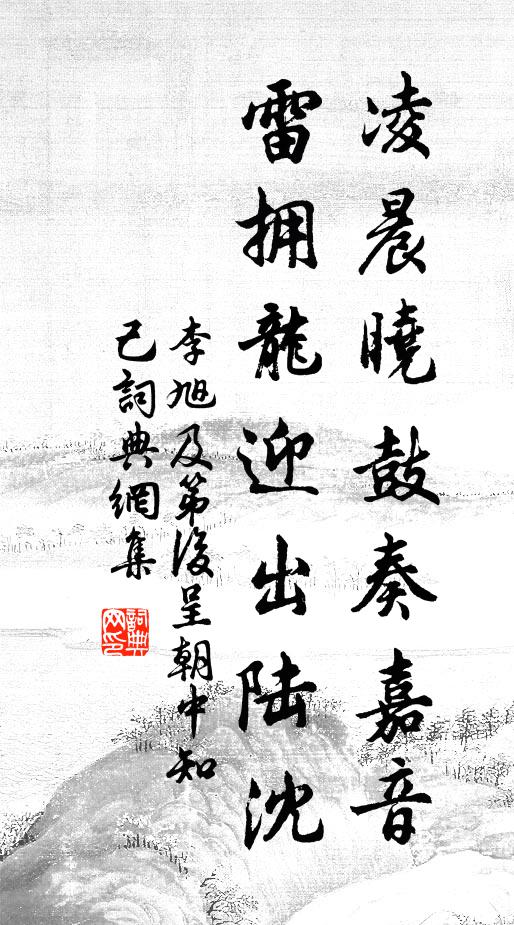 凌晨曉鼓奏嘉音
雷拥龍迎出陆沈
李旭及第後呈朝中知
己詞典網集
詞典